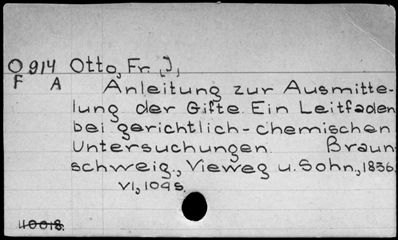 O 914 Otto, Fr. [J]
F A Anleitung zur Ausmitte-
lung der Gifte. Ein Leitfaden
bei gerichtlich-chemischen
Untersuchungen Braun-
schweig., Vieweg u. Sohn., 1836.
VI, 104 S.
40018.